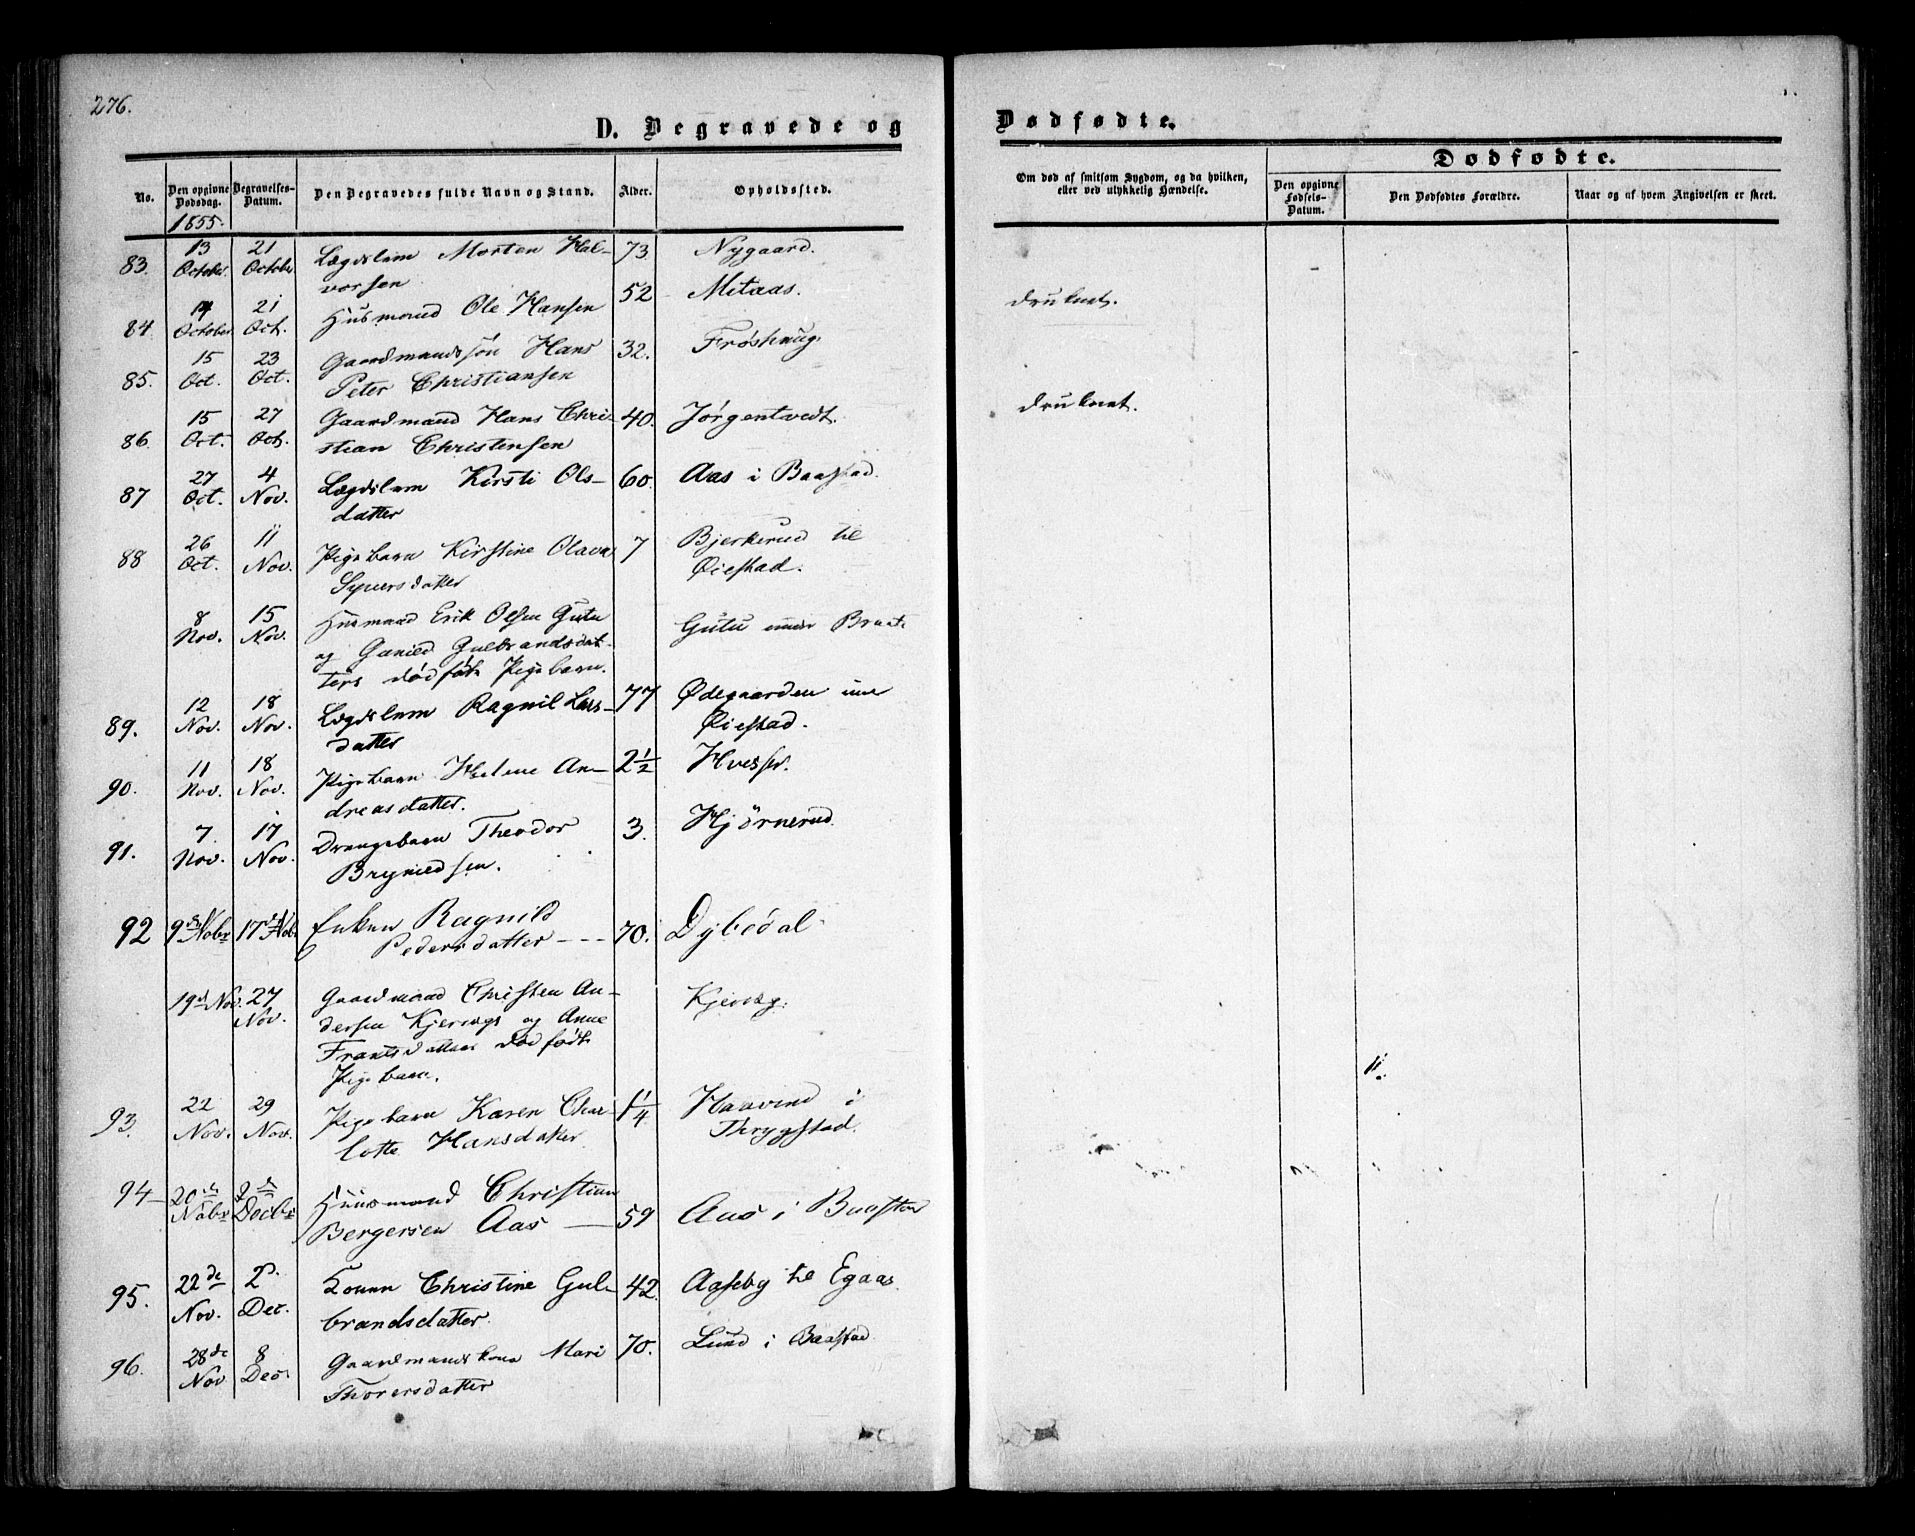 276.
D. Begravede og
Dødfødte.
No.
Den opgivne Dødsdag.
Begravelses-Datum.
Den Begravedes fulde Navn og Stand.
Alder.
Opholdssted.
Om død af smitsom Sygdom, og da hvilken, eller ved ulykkelig Hændelse.
Dødfødte.
Den opgivne Fødsels-Datum.
Den Dødfødtes Forældre.
Naar og af hvem Angivelsen er skeet.
1855.
83. 13 October. 21 October Lægdslem Morten Hal- 73. Nygaard.
vorsen
84. 14 October. 21 Oct. Husmand Ole Hansen 52 Mitaas. druknet.
85. 15 Oct. 23 Oct. Gaardmandssøn Hans 32. Frøshaug.
Peter Christiansen
86. 15 Oct. 27 Oct. Gaardmand Hans Chri- 40. Jørgentvedt. druknet.
stian Christensen
87 27 Oct. 4 Nov. Lægdslem Kirsti Ols- 60. Aas i Baastad.
datter
88 26 Oct. 11 Nov. Pigebarn Kirstine Olava 7 Bjerkerud til
Syversdatter Øiestad.
8 Nov. 15 Nov. Husmand Erik Olsen Gutu Gutu under
og Gunild Gulbrandsdat-
ters dødfødte Pigebarn.
89. 12 Nov. 18 Nov. Lægdslem Ragnil Lars- 77 Ødegaarden
datter Øiestad.
90. 11 Nov. 18 Nov. Pigebarn Helene An- 2 1/2
dreasdatter.
91. 7 Nov. 17 Nov. Drengebarn Theodor 3. Hjørnerud.
Bryniedsen.
92 9de Nobr 17de Nobr Enken Ragnild
Pedersdatter --- 70. Dybedal
19de Nov. 27 Nov. Gaardmand Christen An- Kjensøg.
dersen og Anne
Frantsdatters dødfødte
Pigebarn.
11.
93. 22 Nov. 29 Nov. Pigebarn Karen Char 1 1/4 Haavind i
lotte Hansdatter Thrygstad.
94 20de Nobr 2de Decbr Huusmand Christian
Bergersen Aas — 59 Aas i Baastad
95. 22de Nov. 2d. Dec. Konen Christine Gul- 42. Aaseby til Egaas.
brandsdatter.
96. 28de Nov 8 Dec Gaardmandskone Mari 70. Lund i Baastad
Thorersdatter